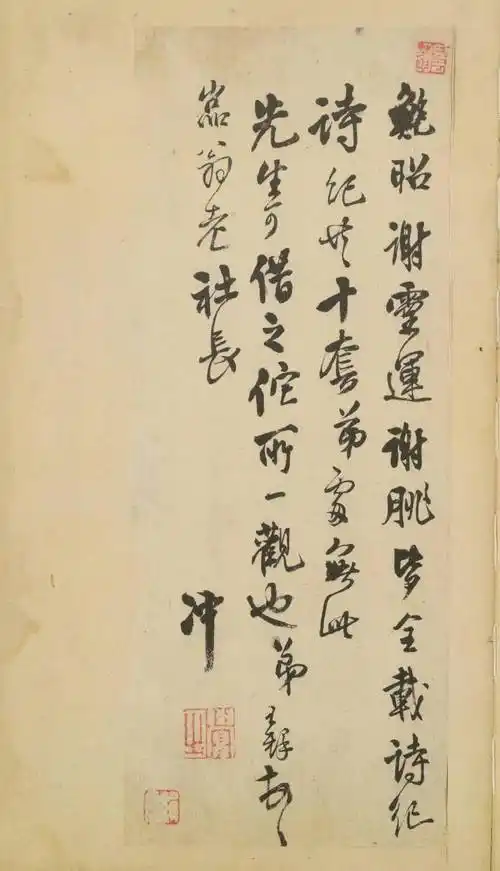 鮑照謝靈運謝朓皆全載詩紀
詩紀共十套弟處無此
先生可借之佗所一觀也弟
嵓翁老社長
冲